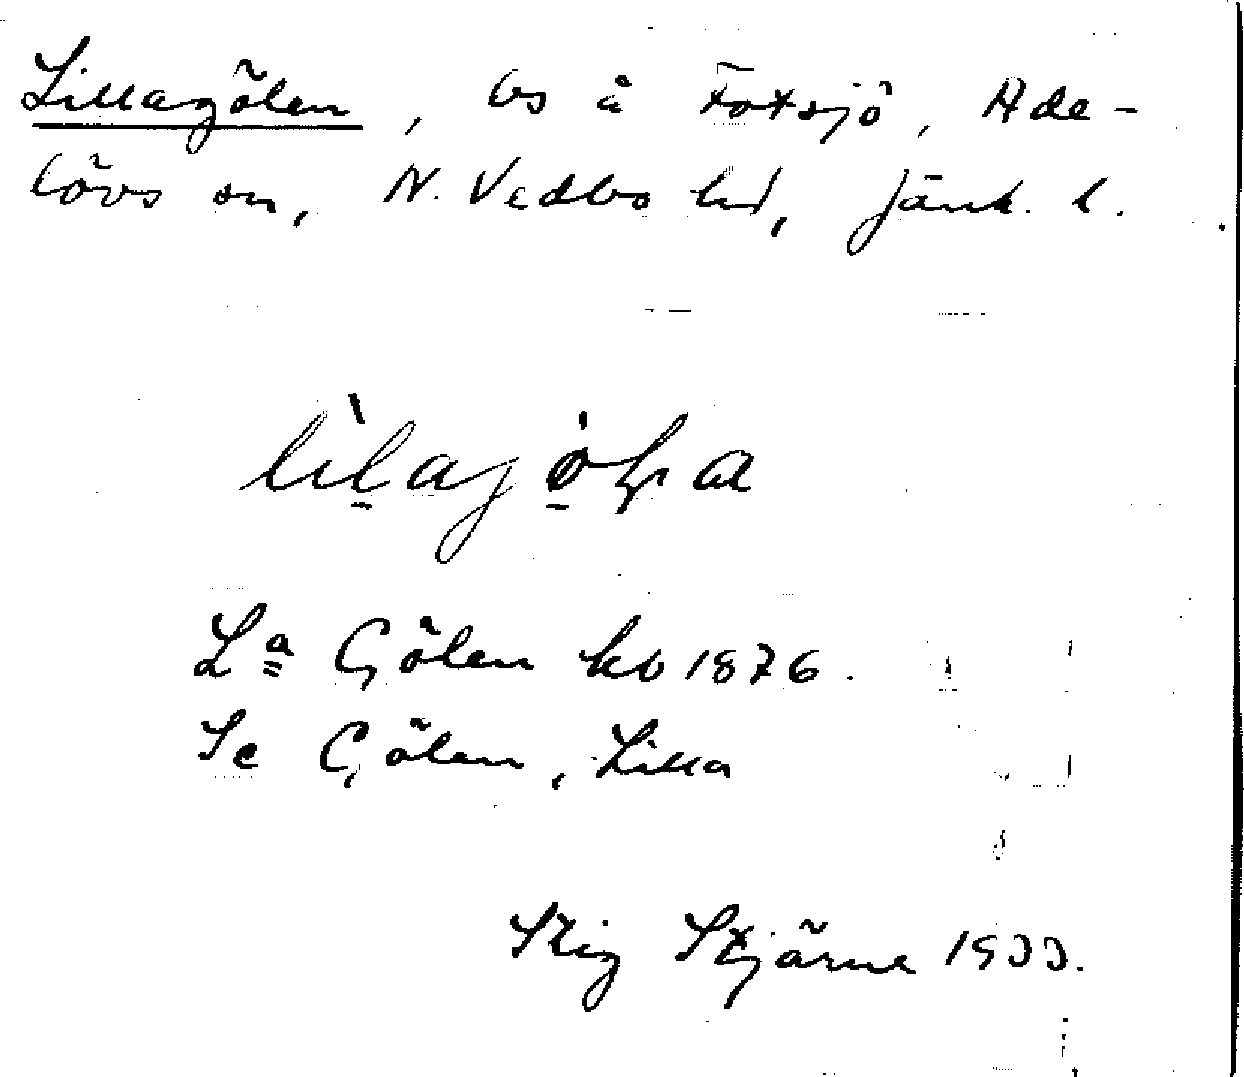 Lillagölen, ls å Fotsjö, Ade-
lövs sn, N. Vedbo hd, Jönk. l.
La Gölen kb 1876.
Se Gölen, Lilla
Stig Stjärne 1933.